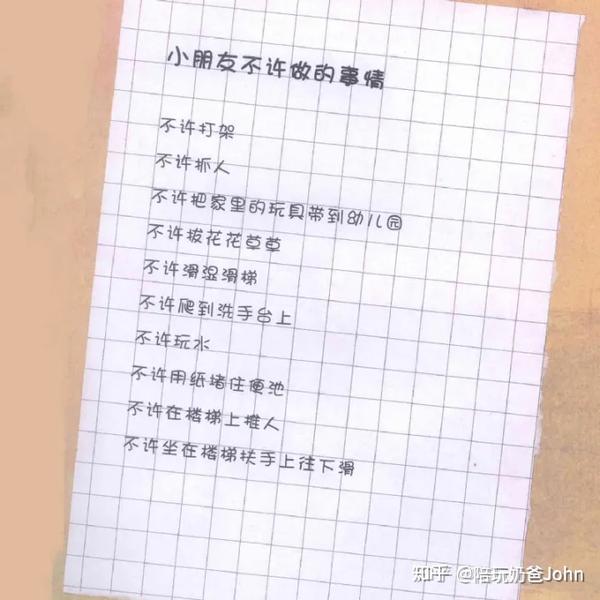 小朋友不许做的事情
不许打架
不许抓人
不许把家里的玩具带到幼儿园
不许拔花花草草
不许滑湿滑梯
不许爬到洗手台上
不许玩水
不许用纸堵住便池
不许在楼梯上推人
不许坐在楼梯扶手上往下滑
知乎 @陪玩奶爸John